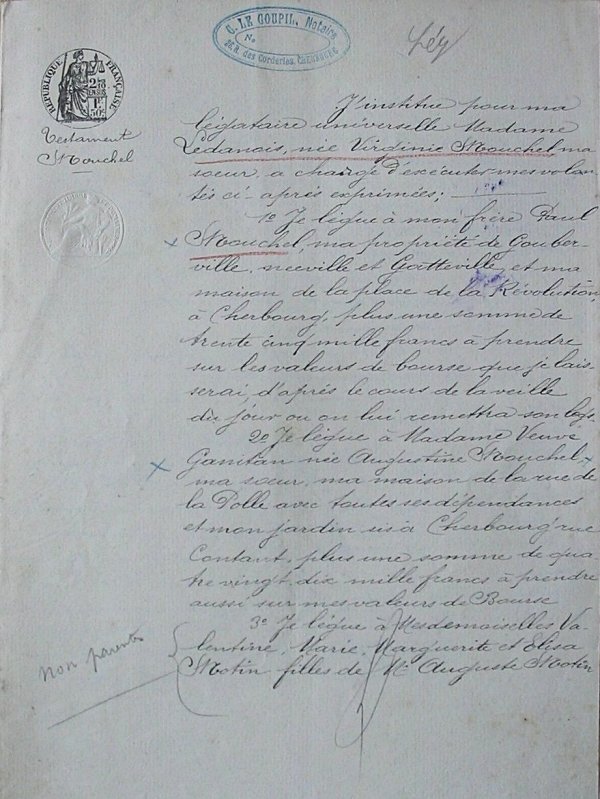 C. LE GOUPIL, Notaire
No
26, R. des Corderies, CHERBOURG
Lég
RÉPUBLIQUE FRANÇAISE
Testament
Mouchel
J'institue pour ma
légataire universelle Madame
Ledanois, née Virginie Mouchel ma
sœur, a charge d'exécuter mes volon
tés ci-après exprimées;
1º Je lègue à mon frère Paul
Mouchel, ma propriété de Gouber-
ville, neville et Gatteville, et ma
maison de la place de la Révolution
à Cherbourg, plus une somme de
trente cinq mille francs à prendre
sur les valeurs de bourse que je lais-
serai, d'après le cours de la veille
du jour ou on lui remettra son legs
2º Je lègue à Madame Veuve
née Augustine Mouchel
ma sœur, ma maison de la rue de
la Polle avec toutes ses dépendances
et mon jardin sis à Cherbourg rue
Contant, plus une somme de qua
tre vingt dix mille francs à prendre
aussi sur mes valeurs de Bourse
3º Je lègue à Mesdemoiselles Va
lentine, Marie, Marguerite et Elisa
Motin filles de Mr Auguste Motin
non parents